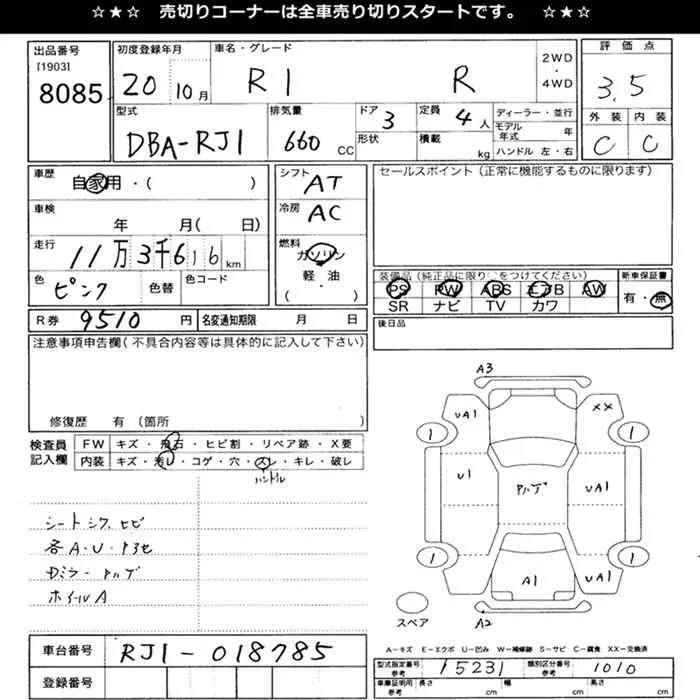 ☆★☆ 売切りコーナーは全車売り切りスタートです。 ☆★☆
出品番号 [1903] 8085
初度登録年月 20 10月
車名・グレード R1 R
2WD・4WD
評価点 3.5
外装 C 内装 C
型式 DBA-RJ1
排気量 660 CC
ドア 3
形状
定員 4人
積載 kg
ディーラー・並行
モデル年式 年
ハンドル 左・右
車歴 自家用・( )
車検 年 月( 日)
走行 11万3千616km
色 ピンク 色替 色コード
シフト AT
冷房 AC
燃料 ガソリン 軽・油 ( )
セールスポイント(正常に機能するものに限ります)
装備品(純正品に限り○をつけてください)
PS PW ABS エアB AW
SR ナビ TV カワ
新車保証書 有・無
R券 9510円 名変通知期限 月 日
後日品
注意事項申告欄(不具合内容等は具体的に記入して下さい)
修復歴 有 (箇所
検査員記入欄
FW キズ・飛石・ヒビ割・リペア跡・X要
内装 キズ・汚レ・コゲ・穴・スレ・キレ・破レ
ハンドル
シートシワ、ヒビ
各A・U・
ホイールA
A3
UA1 XX
1 1
U1 UA1
1 1
A1 UA1
スペア A2
A-キズ E-エクボ U-凹み W-補修跡 S-サビ C-腐食 XX-交換済
車台番号 RJ1-018785
登録番号
型式指定番号 参考 15231 類別区分番号 参考 1010
車庫証明用 参考 長さ cm 幅 cm 高さ cm